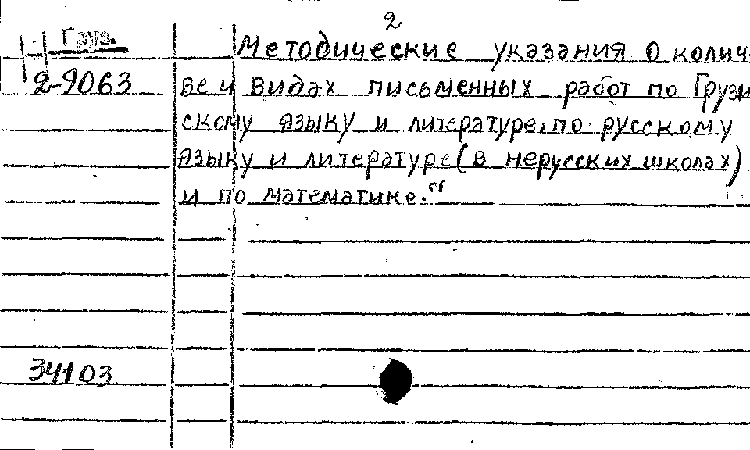 2
Груз.
Методические указания о колич
2-9063 ве и видах письменных работ по Грузи
скому языку и литературе, по русскому
языку и литературе (в нерусских школах)
и по математике."
34103